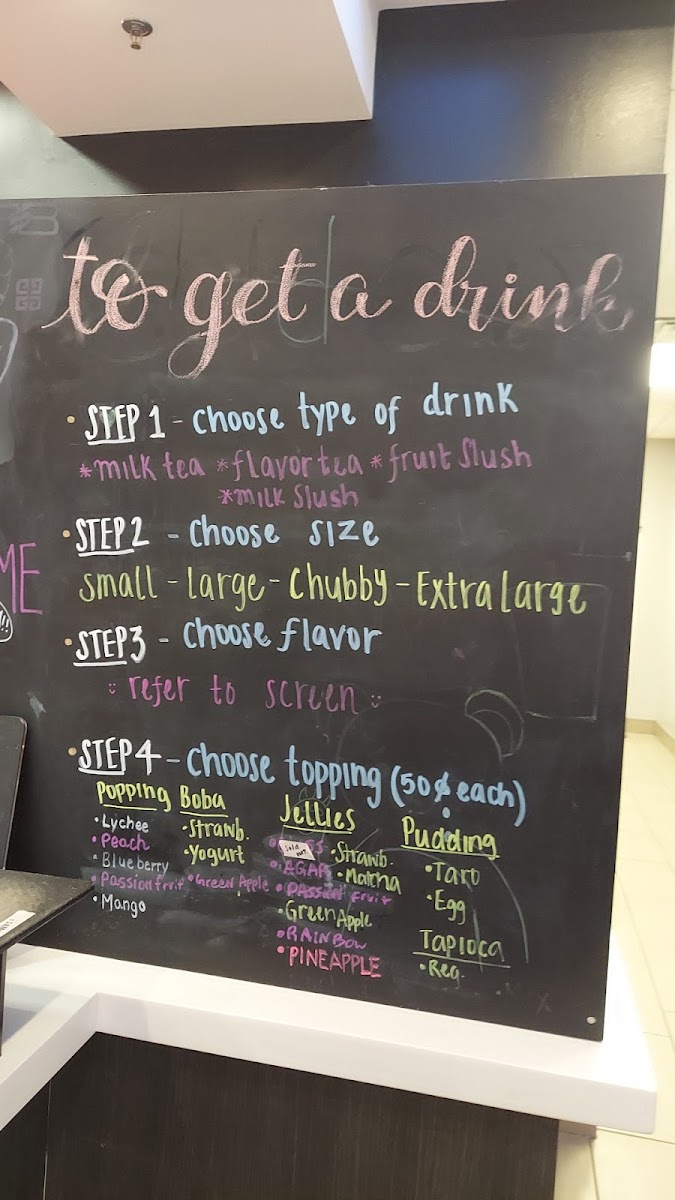 to get a drink
• STEP 1 - choose type of drink
*milk tea *flavor tea *fruit slush
*milk slush
• STEP 2 - choose size
small - large - Chubby - Extra large
• STEP 3 - choose flavor
refer to screen
• STEP 4 - choose topping (50¢ each)
Popping Boba
• Lychee
• Peach
• Blueberry
• Passion fruit
• Mango
• Strawb.
• Yogurt
• Green Apple
Jellies
sold out
• AGAR
• PASSION FRUIT
• Green Apple
• RAINBOW
• PINEAPPLE
• Strawb.
• Matcha
Pudding
• Taro
• Egg
Tapioca
• Reg.
ME
!!